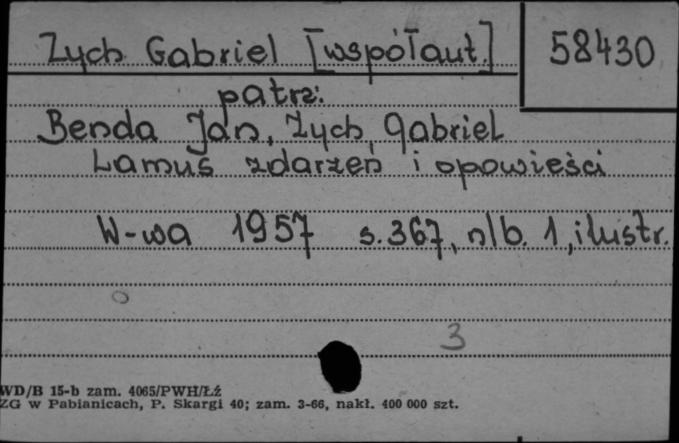 Zych Gabriel [współaut.] 58430
patrz:
Benda Jan, Zych, Gabriel
Lamus zdarzeń i opowieści
W-wa 1957 s. 367, nlb. 1, ilustr.
3
WD/B 15-b zam. 4065/PWH/Łź
ZG w Pabianicach, P. Skargi 40; zam. 3-66, nakł. 400 000 szt.